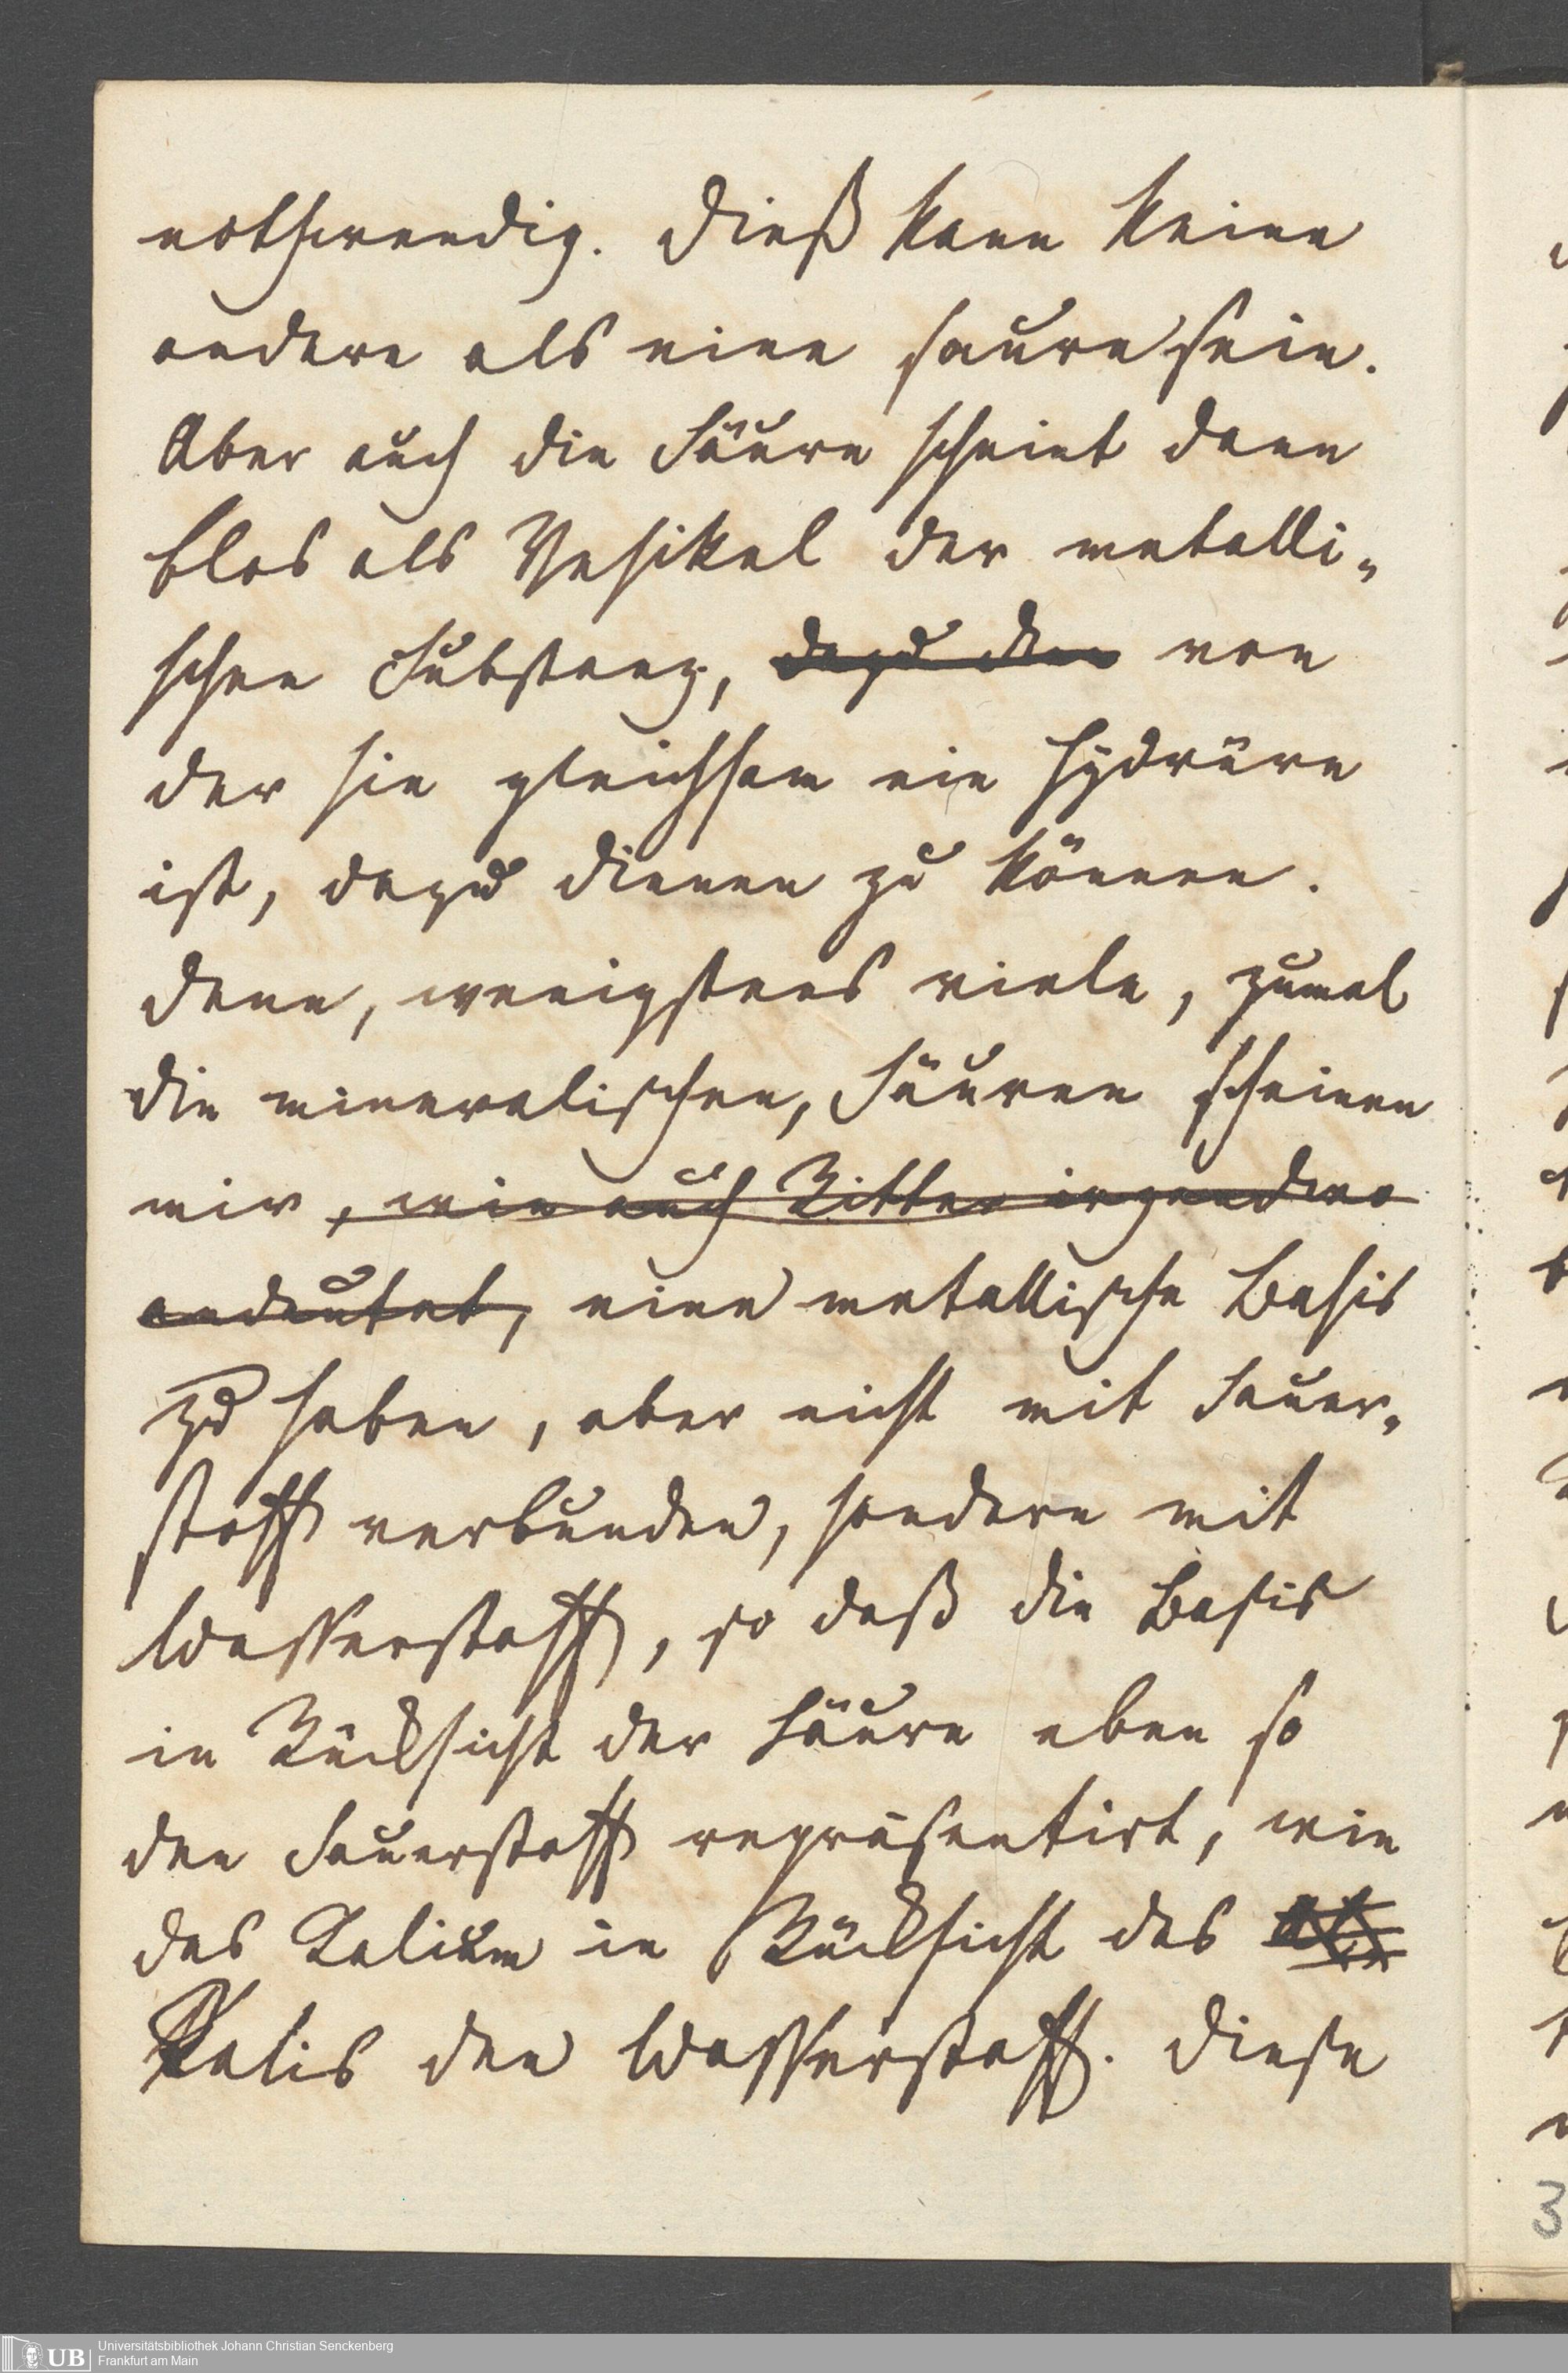 nothwendig. Dieß kann keine
andere als eine saure sein.
Aber auch die Säure scheint dann
blos als Vehikel der metalli-
schen Substanz, dazu den von
der sie gleichsam ein Hydrüre
ist, dazu dienen zu können.
denn, wenigstens viele, zumal
die mineralischen, Säuren scheinen
mir, wie auch Ritter irgendwo
andeutet, eine metallische Basis
zu haben, aber nicht mit Sauer-
stoff verbunden, sondern mit
Wasserstoff, so daß die Basis
in Rücksicht der Säure eben so
den Sauerstoff repräsentirt, wie
das Kalium in Rücksicht des
Kalis den Wasserstoff. Diese
3
UB Universitätsbibliothek Johann Christian Senckenberg
Frankfurt am Main